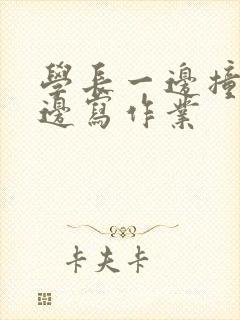 學長一邊撞
邊寫作業
卡夫卡